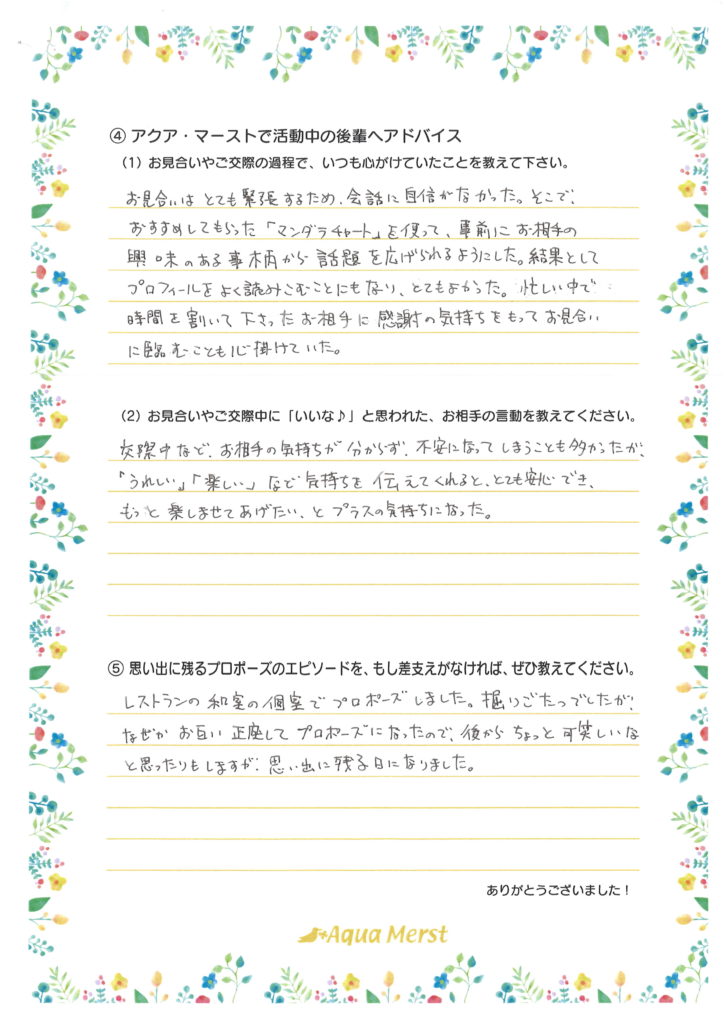 ④ アクア・マーストで活動中の後輩へアドバイス
（1）お見合いやご交際の過程で、いつも心がけていたことを教えて下さい。
お見合いは とても緊張するため、会話に自信がなかった。そこで、
おすすめしてもらった「マンダラチャート」を使って、事前に お相手の
興味のある事柄から 話題を広げられるようにした。結果として
プロフィールをよく読みこむことにもなり、とてもよかった。忙しい中で
時間を割いて下さったお相手に 感謝の気持ちをもってお見合い
に臨むことも心掛けていた。
（2）お見合いやご交際中に「いいな♪」と思われた、お相手の言動を教えてください。
交際中など、お相手の気持ちが 分からず、不安になってしまうことも多かったが、
「うれしい」「楽しい」など気持ちを 伝えてくれると、とても安心でき、
もっと 楽しませてあげたい、と プラスの気持ちになった。
⑤ 思い出に残るプロポーズのエピソードを、もし差支えがなければ、ぜひ教えてください。
レストランの 和室の個室で プロポーズしました。掘りごたつでしたが、
なぜか お互い 正座して プロポーズになったので、後から ちょっと 可笑しいな
と思ったりもしますが、思い出に残る日になりました。
ありがとうございました！
Aqua Merst